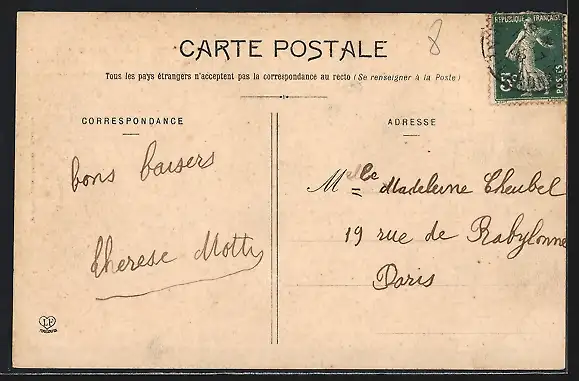 8
CARTE POSTALE
Tous les pays étrangers n'acceptent pas la correspondance au recto (Se renseigner à la Poste)
RÉPUBLIQUE FRANÇAISE
5c
POSTES
CORRESPONDANCE
bons baisers
Therese Motty
LF
ADRESSE
Melle Madeleine Theubel
19 rue de Babylonne
Paris